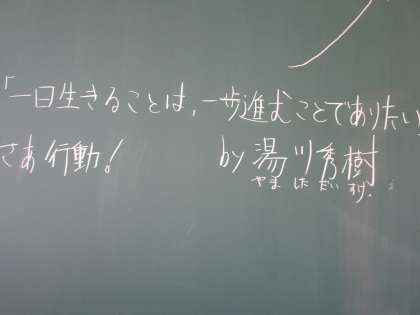 「一日生きることは、一歩進むことでありたい
さあ行動！ by 湯川秀樹
やま した だい すけ.